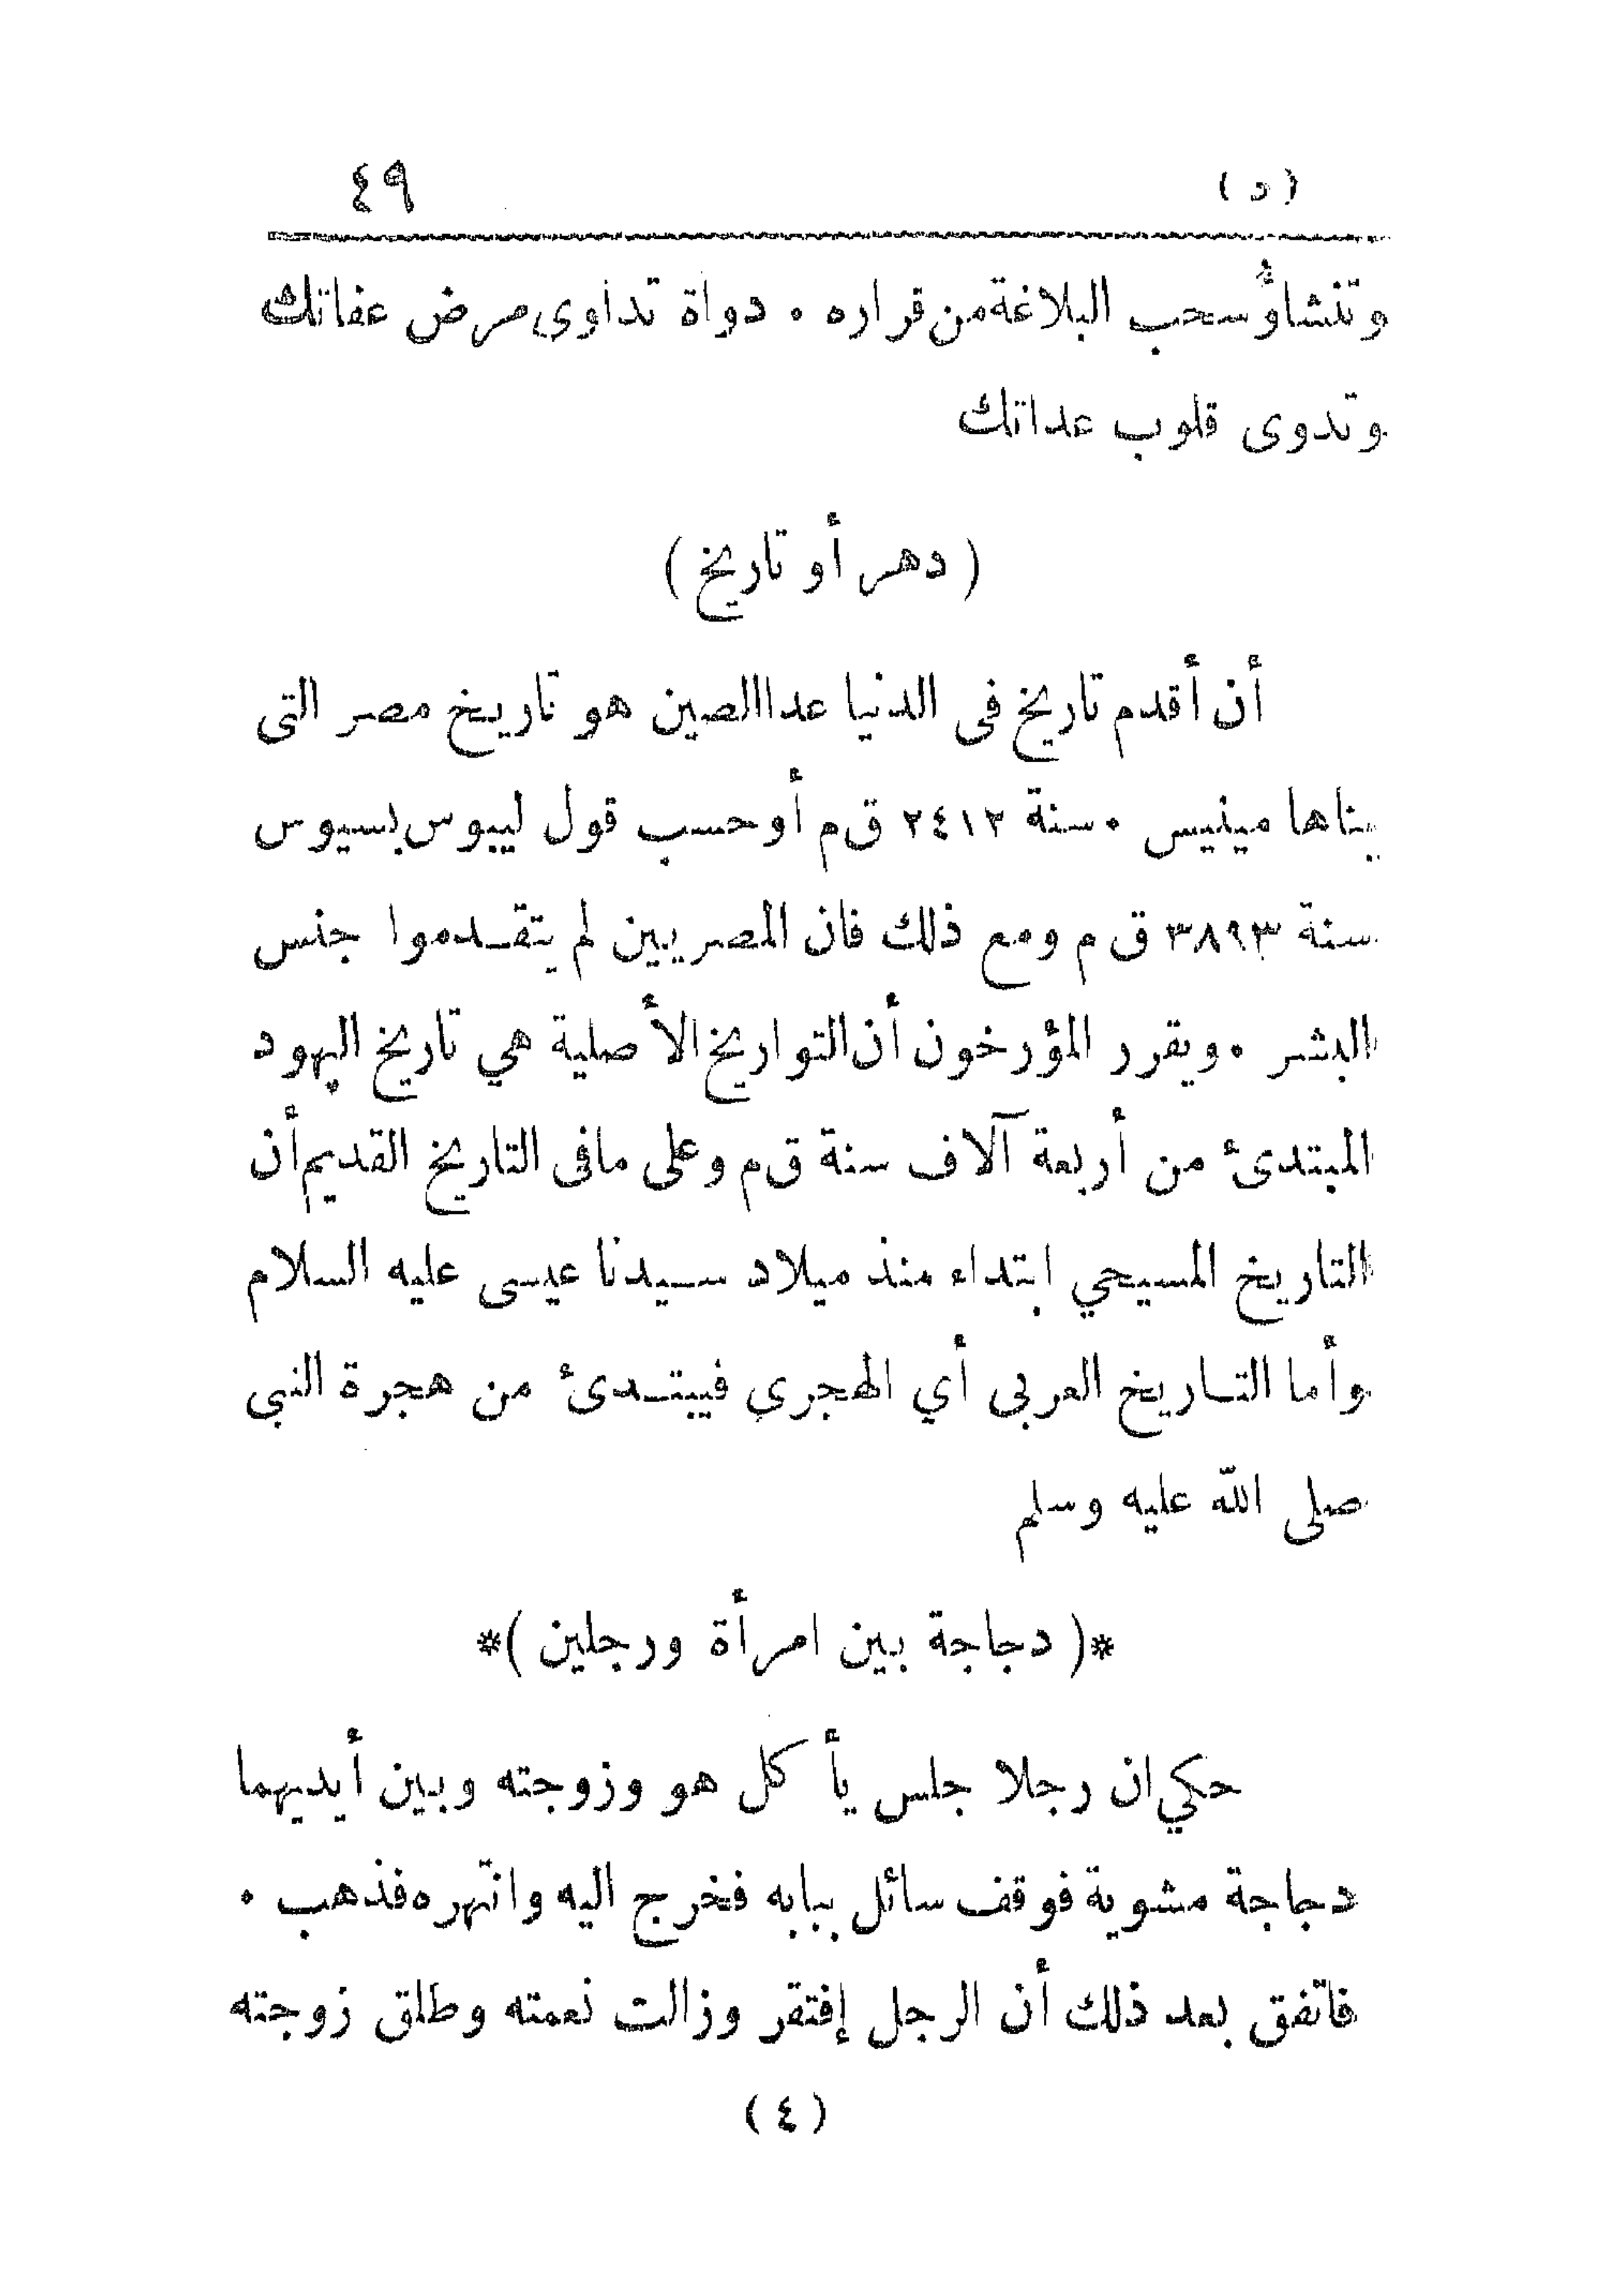 (د) ٤٩
وتنشأ سحب البلاغة من قراره ٠ دواة تداوى مرض عفاتك
وتدوى قلوب عداتك
( دهر أو تاريخ )
أن أقدم تاريخ فى الدنيا عدا الصين هو تاريخ مصر التى
بناها مينيس ٠ سنة ٢٤١٢ ق م أو حسب قول ليبوس بسيوس
سنة ٣٨٩٣ ق م ومع ذلك فان المصريين لم يتقدموا جنس
البشر ٠ ويقرر المؤرخون أن التواريخ الأصلية هي تاريخ اليهود
المبتدئ من أربعة آلاف سنة ق م وعلى مافى التاريخ القديم أن
التاريخ المسيحي ابتداء منذ ميلاد سيدنا عيسى عليه السلام
وأما التاريخ العربى أي الهجري فيبتدئ من هجرة النبى
صلى الله عليه وسلم
*( دجاجة بين امرأة ورجلين )*
حكي ان رجلا جلس يأكل هو وزوجته وبين أيديهما
دجاجة مشوية فوقف سائل ببابه فخرج اليه وانتهره فذهب ٠
فاتفق بعد ذلك أن الرجل إفتقر وزالت نعمته وطلق زوجته
(٤)